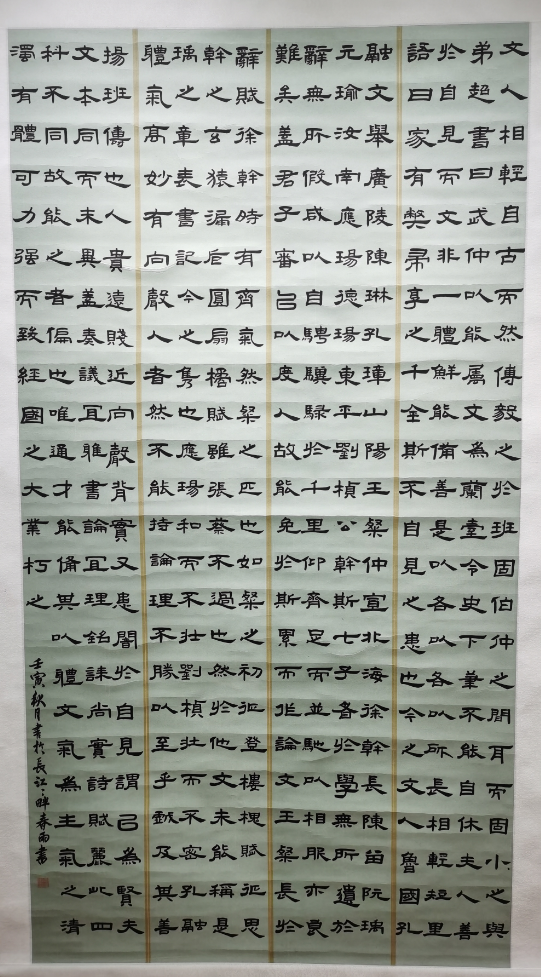 文人相輕自古而然傅毅之於班固伯仲之間耳而固小之與
弟超書曰武仲以能屬文為蘭臺令史下筆不能自休夫人善
於自見而文非一體鮮能備善是以各以各以所長相輕短里
語曰家有弊帚享之千金斯不自見之患也今之文人魯國孔
融文舉廣陵陳琳孔璋山陽王粲仲宣北海徐幹長陳留阮瑀
元瑜汝南應瑒德瑒東平劉楨公幹斯七子者於學無所遺於
辭無所假咸以自騁驥騄於千里仰齊足而並馳以相服亦良
難矣蓋君子審己以度人故能免於斯累而作論文王粲長於
辭賦徐幹時有齊氣然粲之匹也如粲之初征登樓槐賦征思
幹之玄猿漏卮圓扇橘賦雖張蔡不過也然於他文未能稱是
瑀之章表書記今之雋也應瑒和而不壯劉楨壯而不密孔融
體氣高妙有向聲人者然不能持論理不勝以至乎戲及其善
揚班儔也人貴遠賤近向聲背實又患闇於自見謂己為賢夫
文本同而末異蓋奏議宜雅書論宜理銘誄尚實詩賦麗此四
科不同故能之者偏也唯通才能備其以體文氣為主氣之清
濁有體可力強而致經國之大業朽之
壬寅秋月書於長江畔春雨書